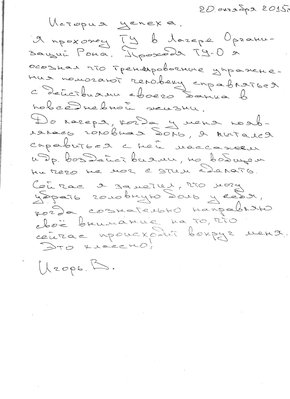 20 октября 2015г
История успеха.
Я прохожу ТУ в Лагере Органи-
заций Рона. Проходя ТУ-0 я
осознал что тренировочные упражне-
ния помогают человеку справляться
с действиями своего банка в
повседневной жизни.
До лагеря, когда у меня появ-
лялась головная боль, я пытался
справиться с ней массажем
и др. воздействиями, но вобщем
ни чего не мог с этим сделать.
Сейчас я заметил, что могу
убрать головную боль у себя,
когда сознательно направляю
своё внимание на то, что
сейчас происходит вокруг меня.
Это классно!
Игорь. В.